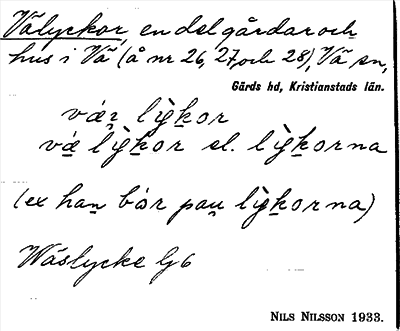 Välyckor, en del gårdar och
hus i Vä (å nr 26, 27, och 28), Vä sn,
Gärds hd, Kristianstads län.
lỳkor
lỳkor el. lỳkorna
(ex han bor pau lỳkorna)
Wäslycke G6
NILS NILSSON 1933.